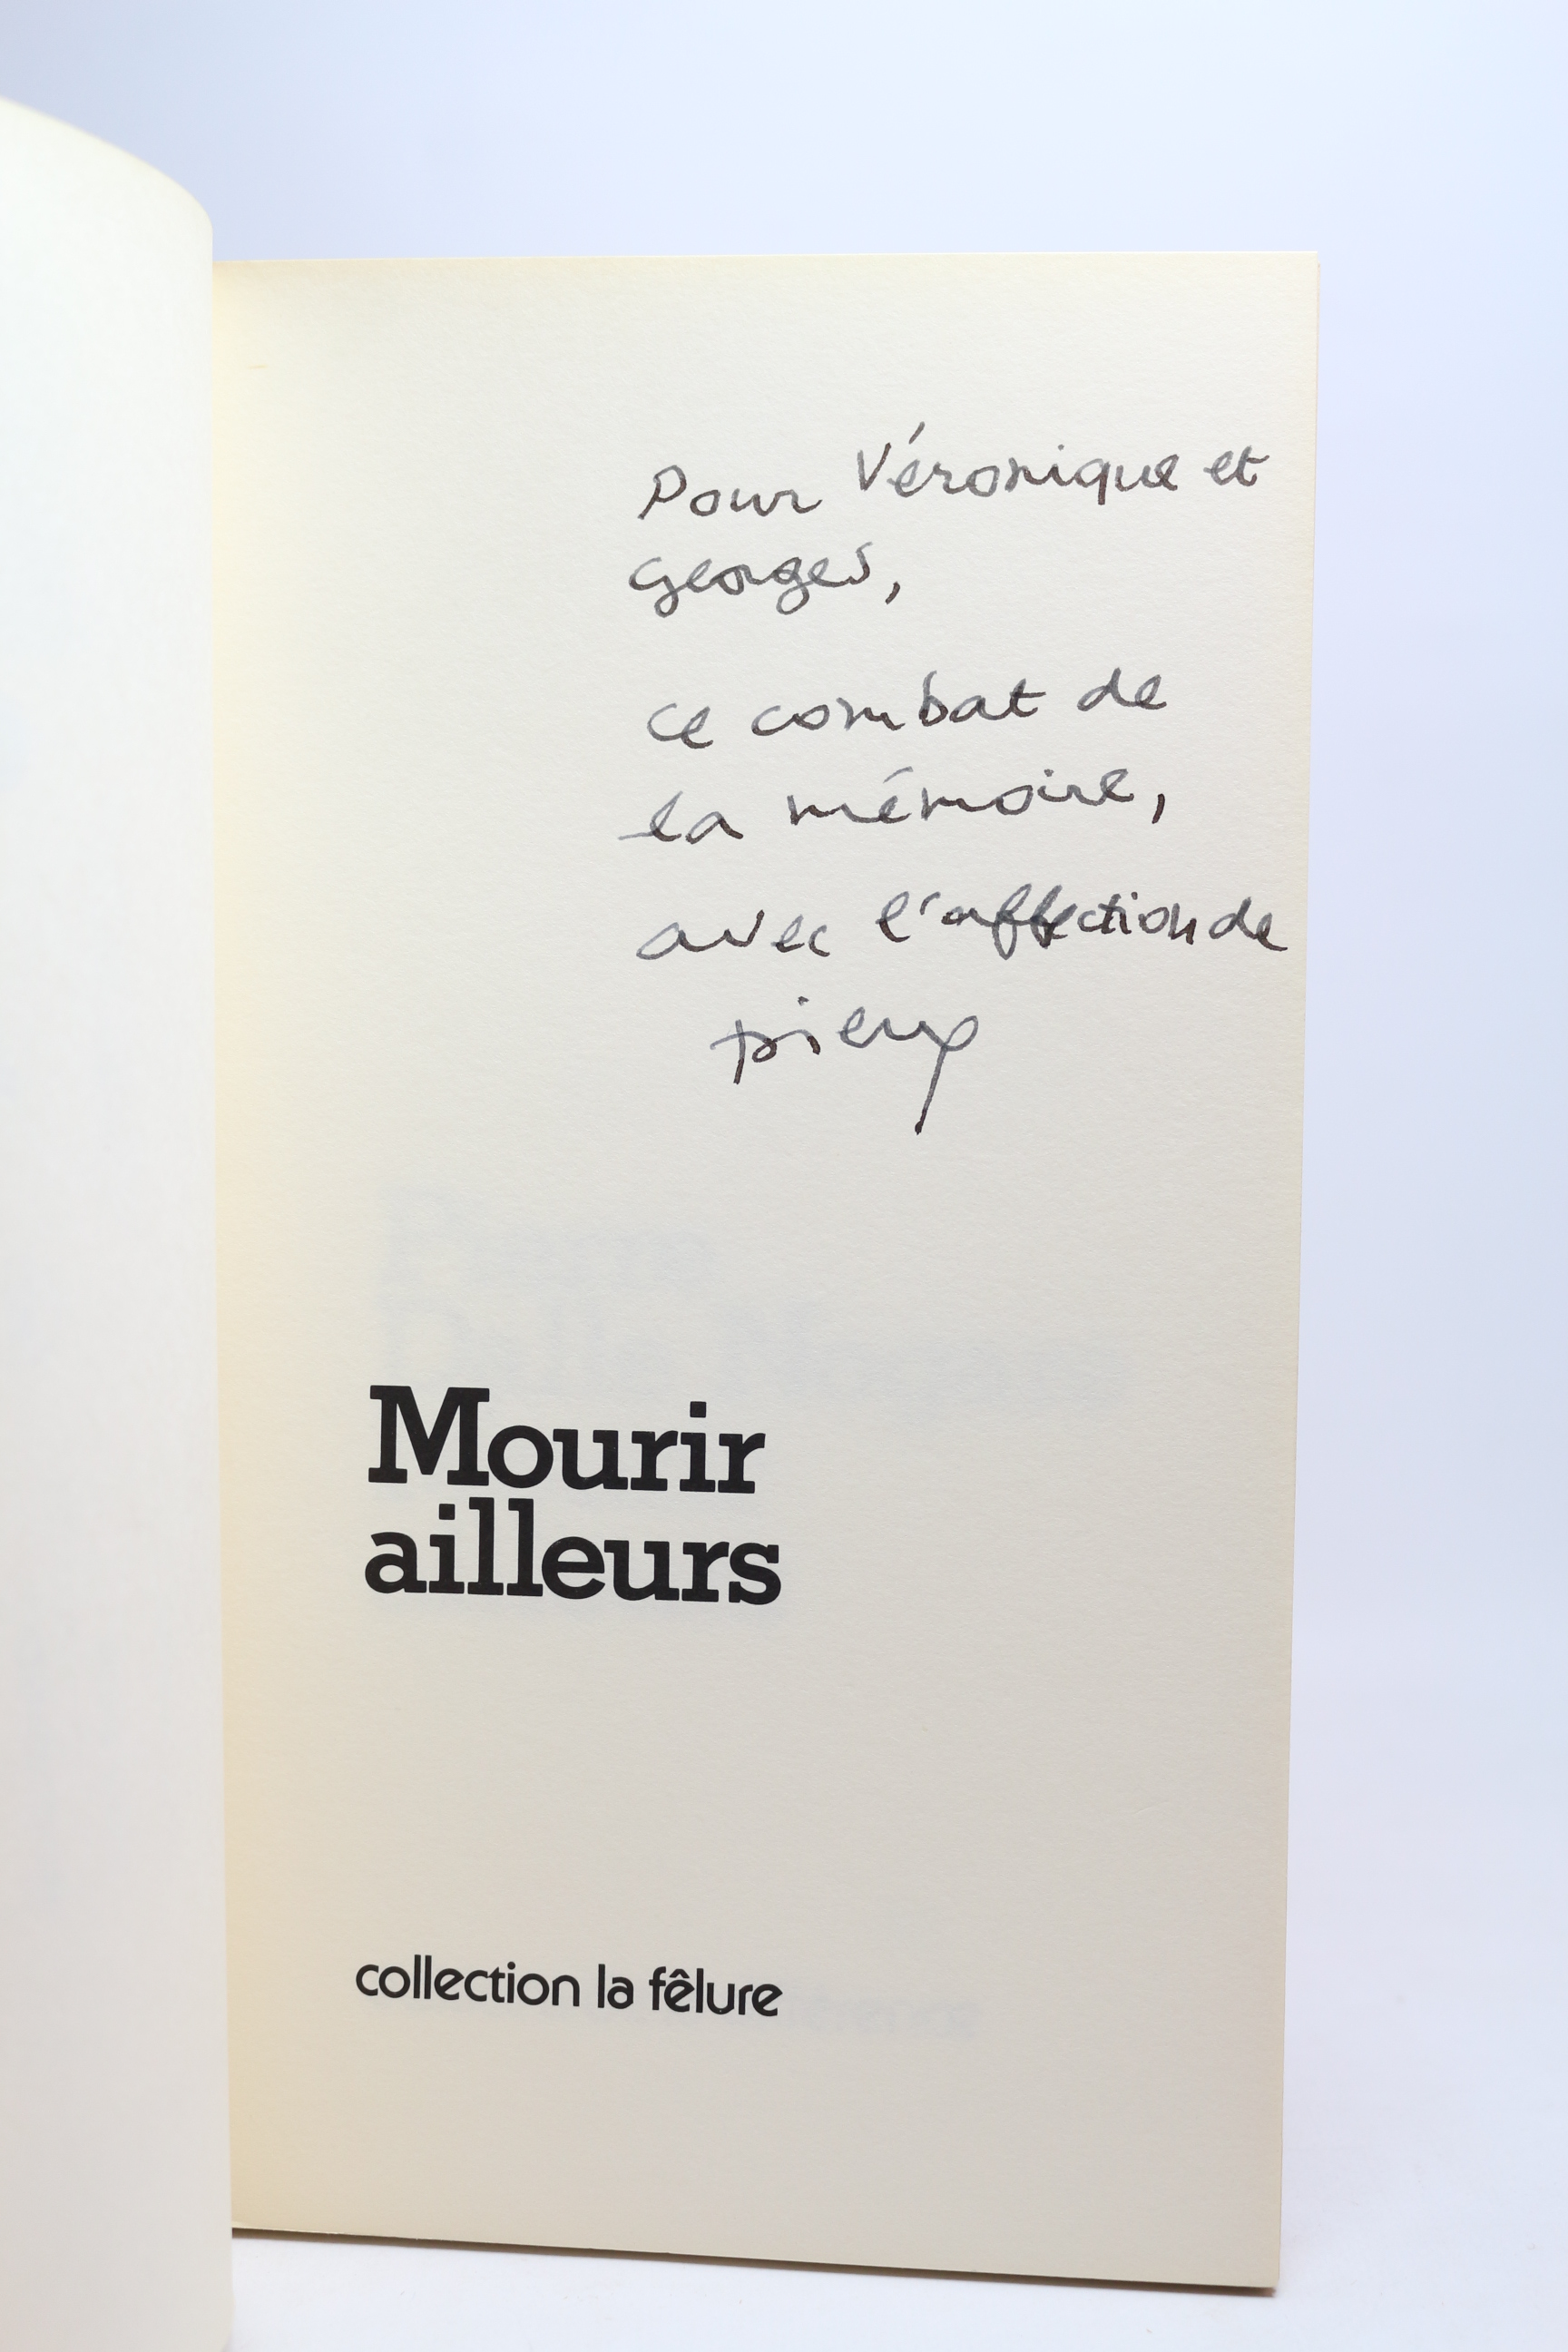 Pour Véronique et
Georges,
ce combat de
la mémoire,
avec l'affection de
Pierre
Mourir
ailleurs
collection la fêlure